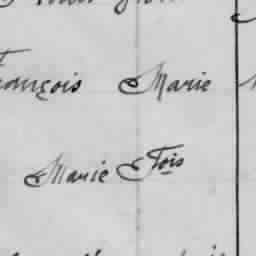 François Marie
Marie Fois